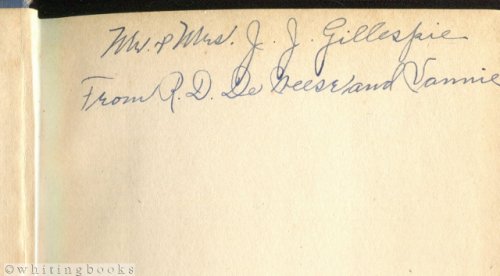 Mr. & Mrs. J. J. Gillespie
From R. D. De Weese and Vannie
©whitingbooks